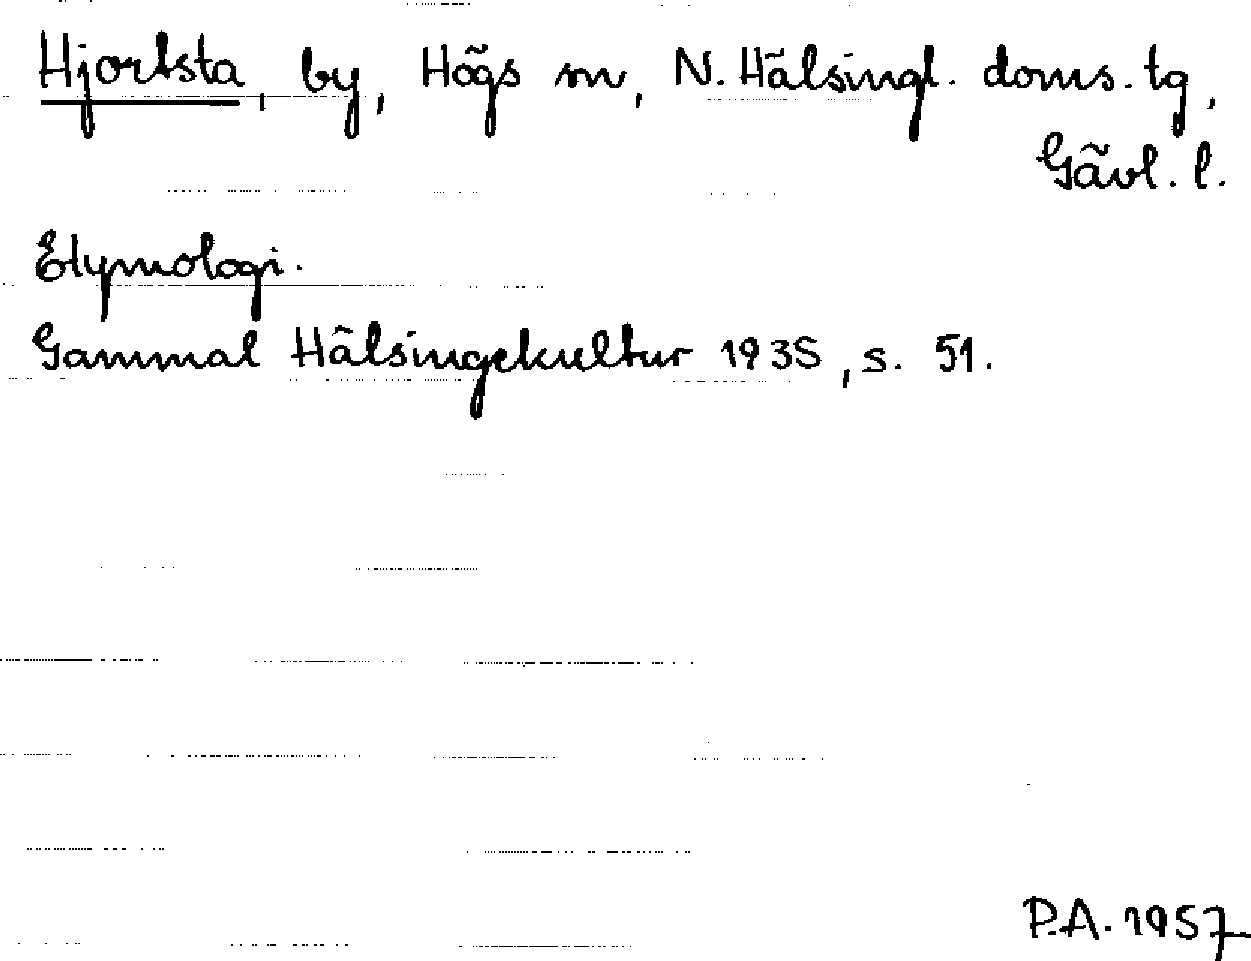 Hjortsta, by, Högs sn, N. Hälsingl. doms. tg,
Gävl. l.
Etymologi.
Gammal Hälsingekultur 1935, s. 51.
P.A. 1957